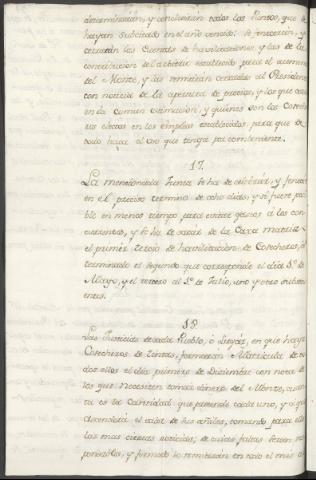 determinarán, y concluirán todos los Puntos, que se
hayan suscitado en el año vencido: Se fenecerán, y
cerrarán las Cuentas de havilitaciones, y las de la
contribucion del arbitrio establecido para el aumento
del Monte, y las remitirán cerradas al Presidente
con noticia de la apertura de precios, y los que corren
en la comun estimacion, y quienes son los Coseche
ros electos en los empleos establecidos, para que de
todo haga el uso que tenga por combeniente.
17.
La mencionada Junta se ha de celebrar, y fenecer
en el preciso termino de ocho dias, y si fuere posi
ble en menos tiempo para evitar gastos á los con
currentes, y se ha de sacar de la Caxa matriz
el primer tercio de havilitacion de Cosecheros,
terminado el segundo que corresponde el dia 1.º de
Mayo, y el tercero al 1.º de Julio, uno y otro subsi
entes.
18.
Las Justicias de cada Pueblo, ó Lugar, en que haya
Cosecheros de tintas, formarán Matricula de to
dos ellos el dia primero de Diciembre con nota de
los que necesiten tomar dinero del Monte, quan
ta es la Cantidad que pretende cada uno, y á que
ascenderá el valor de sus añiles, tomando para ello
las mas ciertas noticias; de cuias faltas serán res
ponsables, y formado lo remitirán en todo el mes á